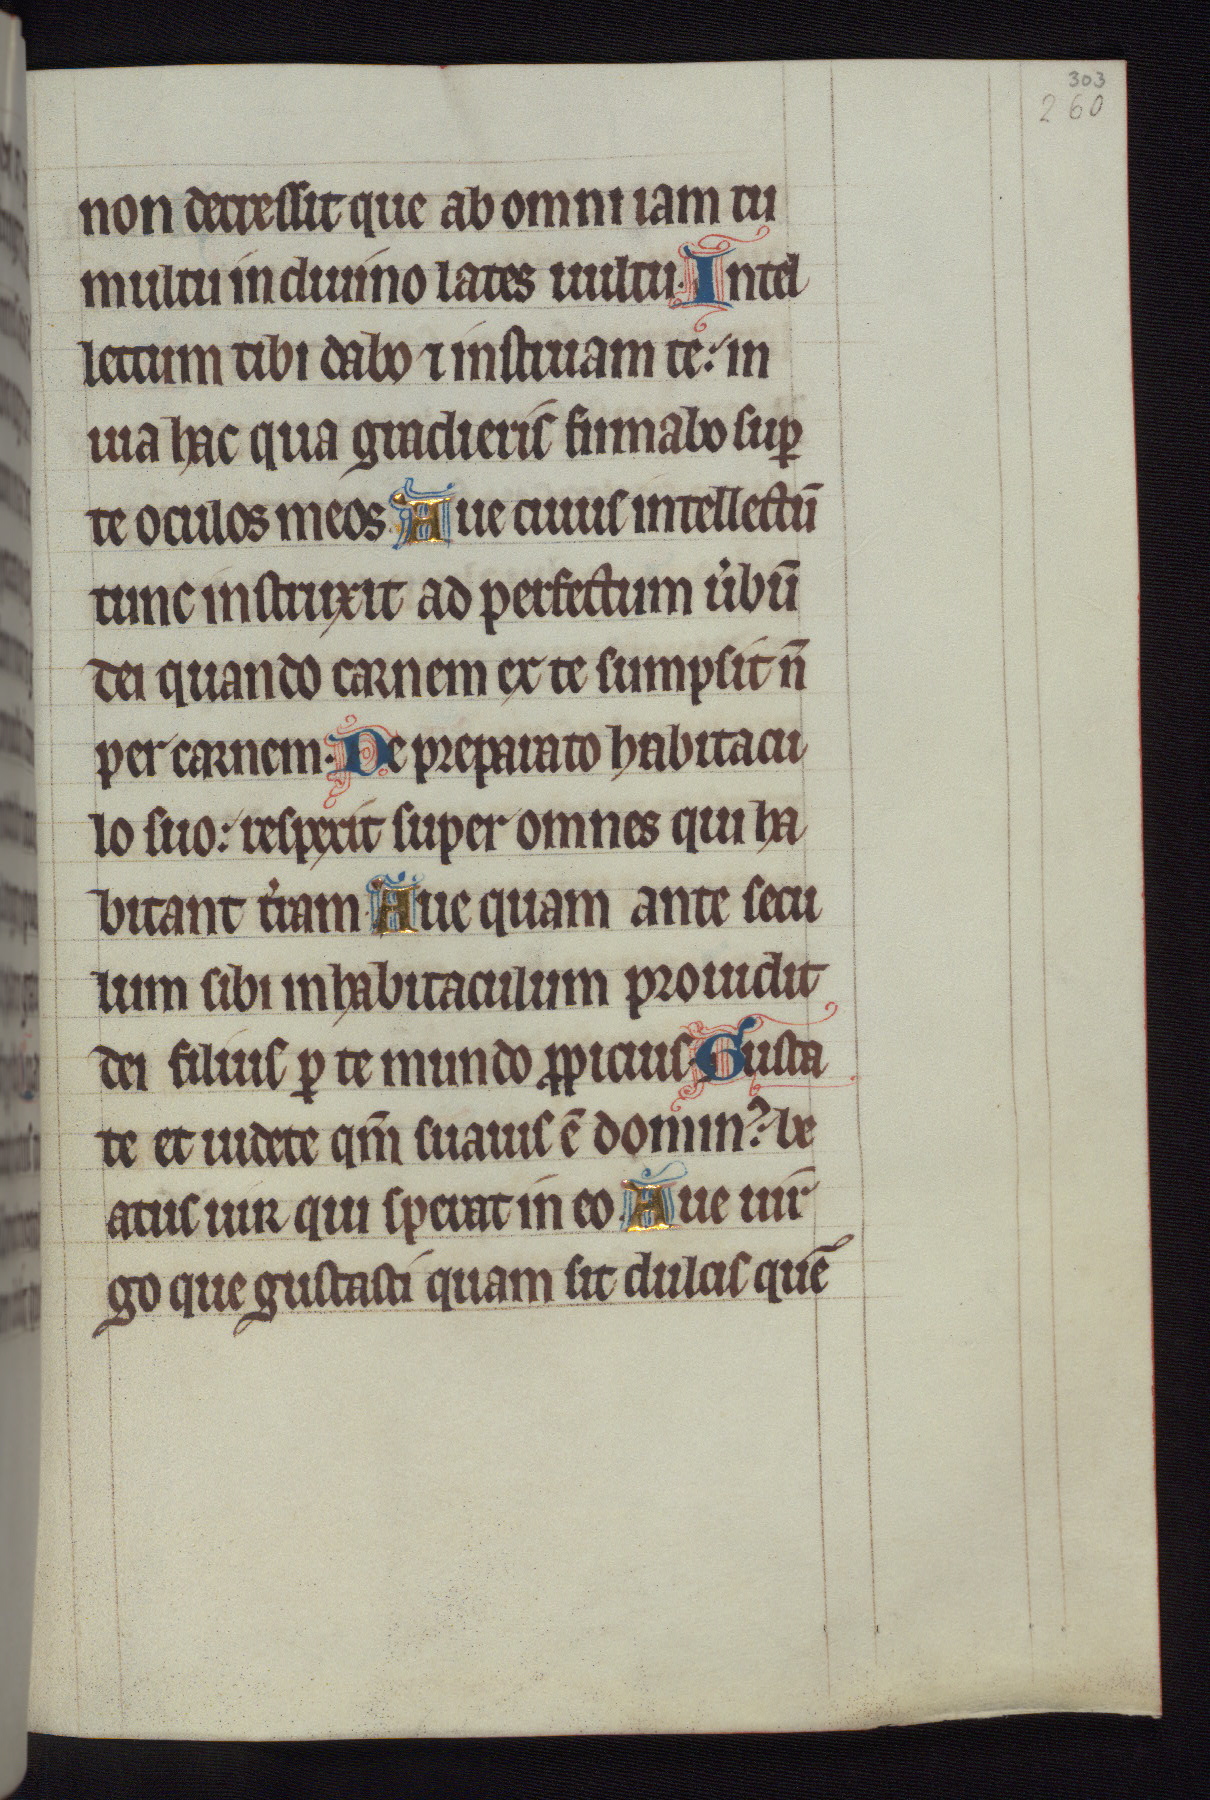 303
260
non decressit que ab omni iam tu
multu in diuino lates uultu. Intel
lectum tibi dabo ⁊ instruam te: in
uia hac qua gradieris firmabo suꝑ
te oculos meos. Aue cuius intellectū
tunc instruxit ad perfectum u̓bū
dei quando carnem ex te sumpsit n̄
per carnem. De preparato habitacu
lo suo: respexit super omnes qui ha
bitant t̓ram. Aue quam ante secu
lum sibi in habitaculum prouidit
dei filius ꝑ te mundo ꝓpicius. Gusta
te et uidete qm̄ suauis ē dominꝰ: be
atus uir qui sperat in eo. Aue uir
go que gustasti quam sit dulcis quē